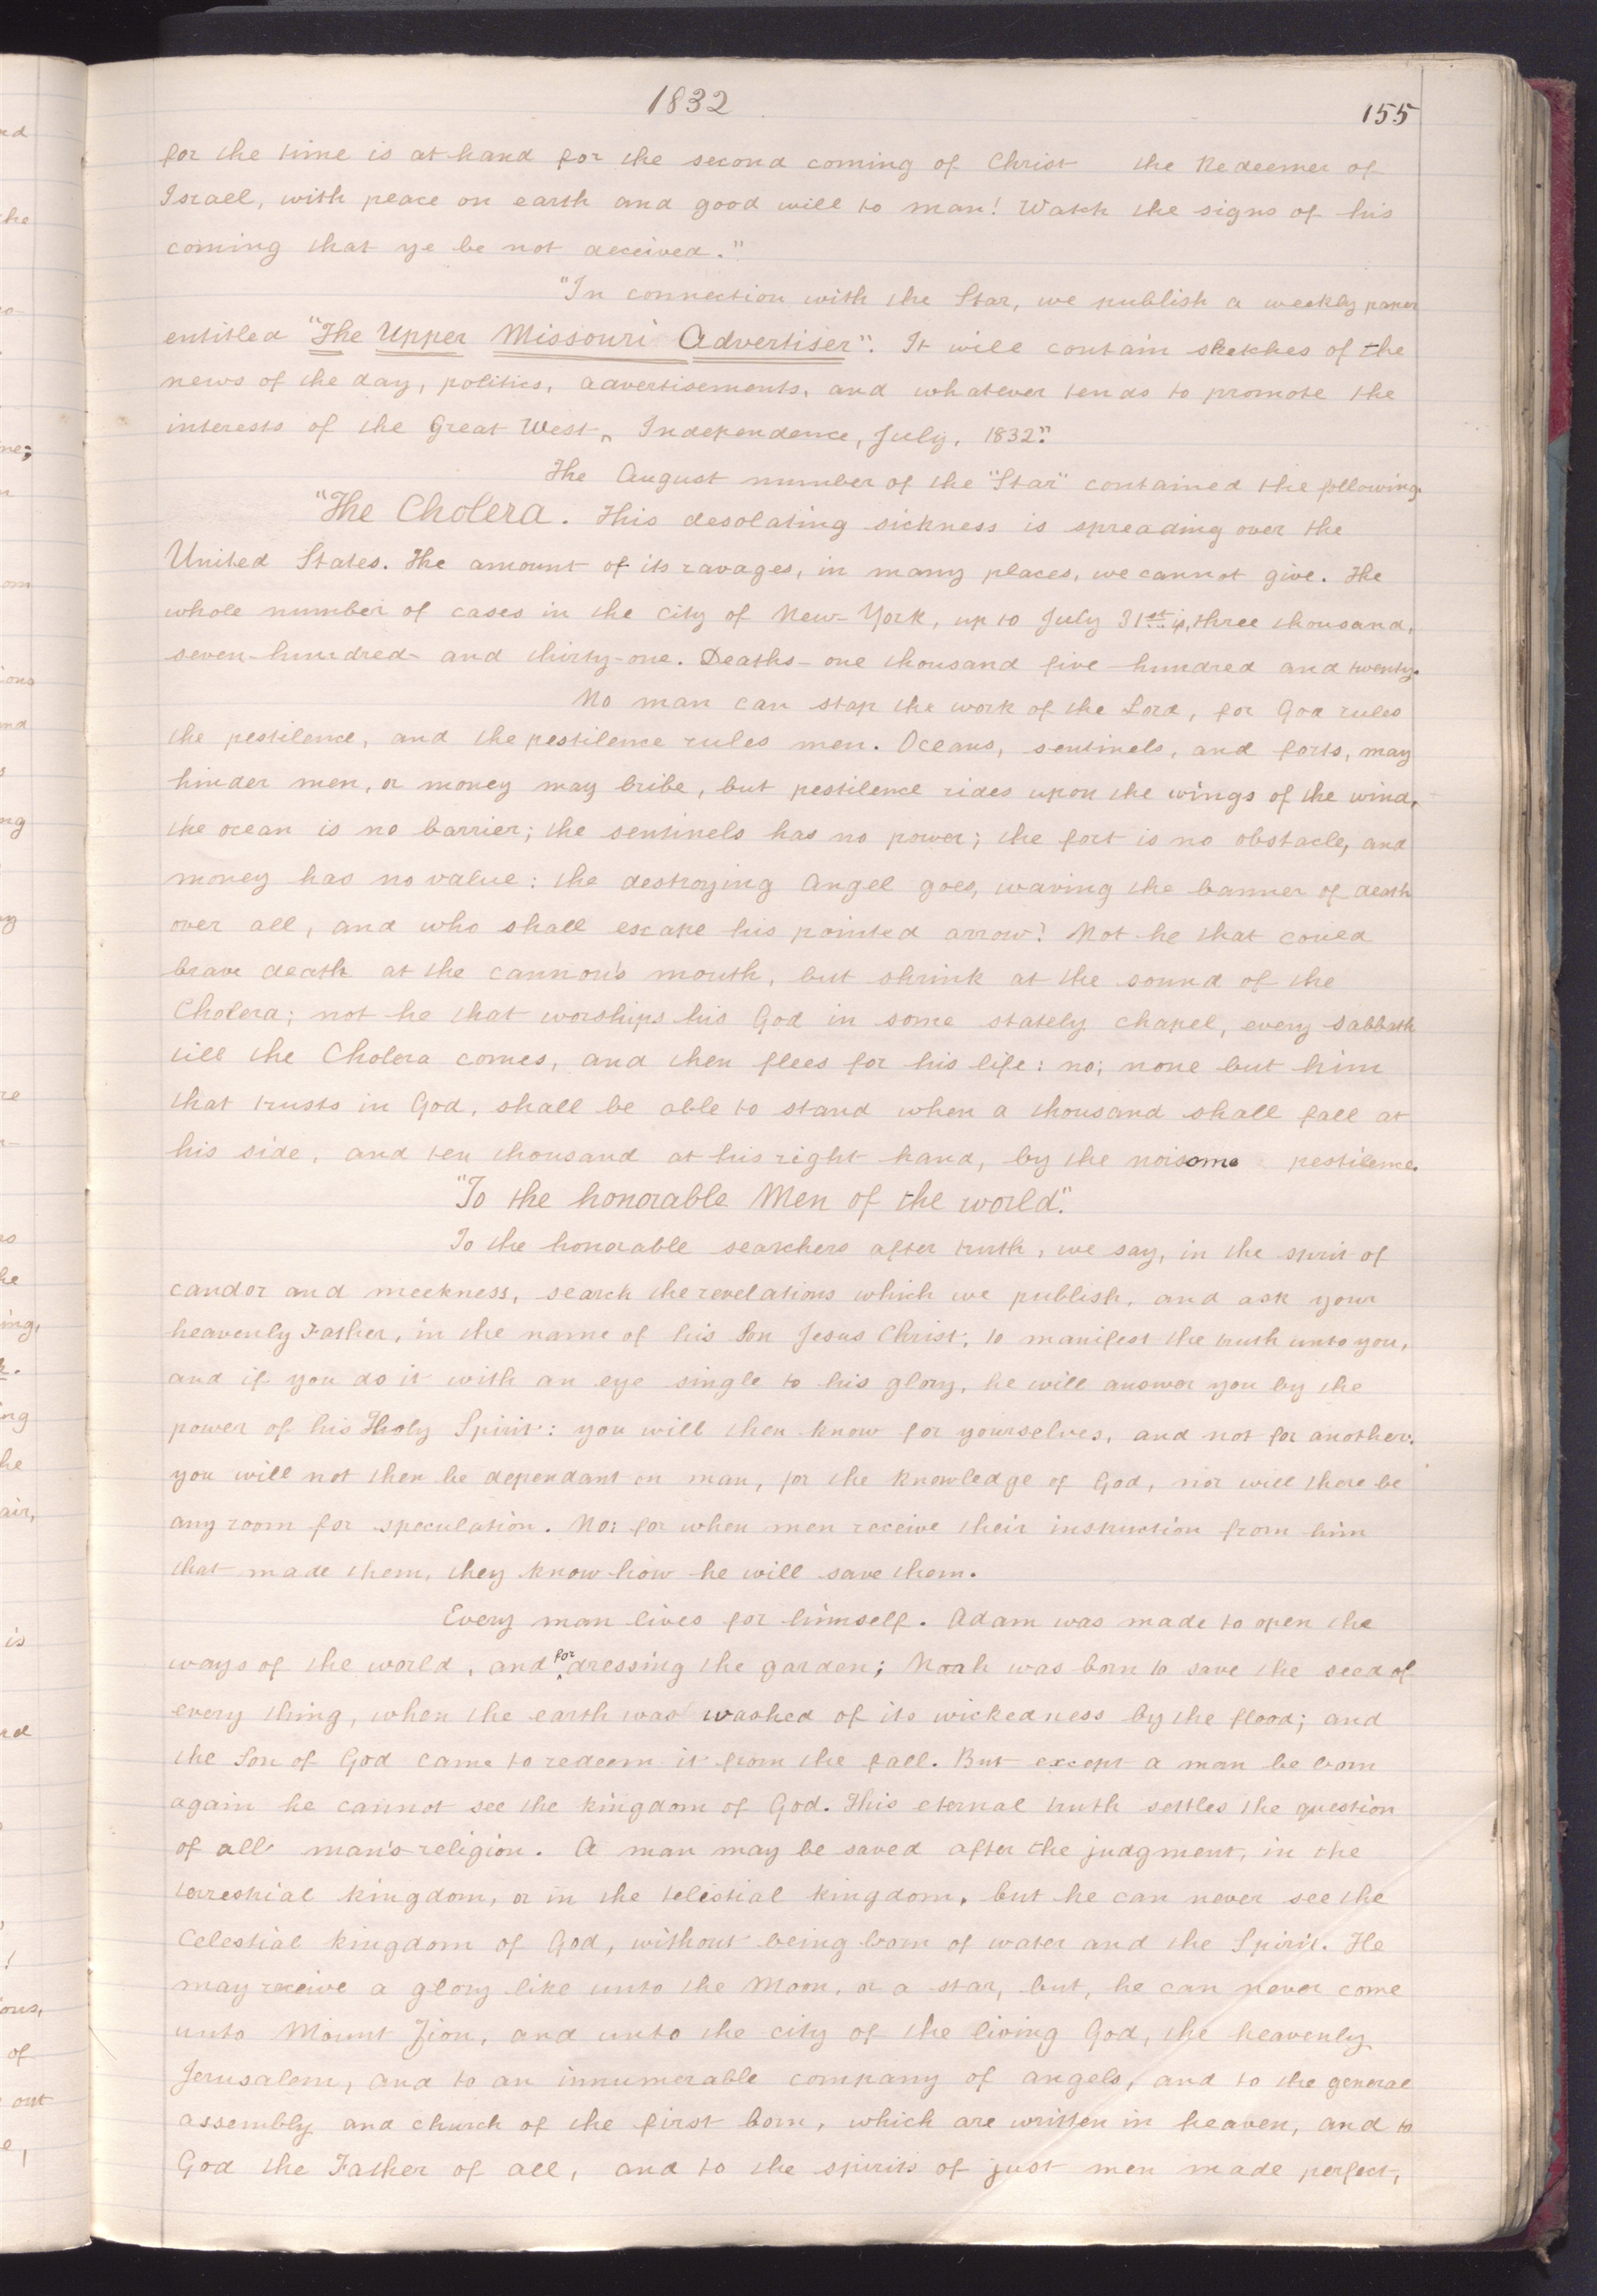 1832
155
for the time is at hand for the second coming of Christ the Redeemer of
Israel, with peace on earth and good will to man! Watch the signs of his
coming that ye be not deceived."
"In connection with the Star, we publish a weekly paper
entitled "The Upper Missouri Advertiser". It will contain sketches of the
news of the day, politics, advertisements, and whatever tends to promote the
interests of the Great West, Independence, July, 1832."
The August number of the "Star" contained the following.
"The Cholera. This desolating sickness is spreading over the
United States. The amount of its ravages, in many places, we cannot give. The
whole number of cases in the city of New-York, up to July 31st is, three thousand,
seven-hundred and thirty-one. Deaths- one thousand five hundred and twenty.
No man can stop the work of the Lord, for God rules
the pestilence, and the pestilence rules men. Oceans, sentinels, and forts, may
hinder men, or money may bribe, but pestilence rides upon the wings of the wind,
the ocean is no barrier; the sentinels has no power; the fort is no obstacle, and
money has no value: the destroying angel goes, waving the banner of death
over all, and who shall escape his pointed arrow? Not he that could
brave death at the cannon's mouth, but shrink at the sound of the
Cholera; not he that worships his God in some stately chapel, every sabbath
till the Cholera comes, and then flees for his life: no; none but him
that trusts in God, shall be able to stand when a thousand shall fall at
his side, and ten thousand at his right hand, by the noisome pestilence.
"To the honorable Men of the world."
To the honorable searchers after truth, we say, in the spirit of
candor and meekness, search the revelations which we publish, and ask your
heavenly Father, in the name of his Son Jesus Christ, to manifest the truth unto you,
and if you do it with an eye single to his glory, he will answer you by the
power of his Holy Spirit: you will then know for yourselves, and not for another:
you will not then be dependant on man, for the knowledge of God, nor will there be
any room for speculation. No; for when men receive their instruction from him
that made them, they know how he will save them.
Every man lives for himself. Adam was made to open the
ways of the world, and for dressing the garden; Noah was born to save the seed of
every thing, when the earth was washed of its wickedness by the flood; and
the Son of God came to redeem it from the fall. But except a man be born
again he cannot see the kingdom of God. This eternal truth settles the question
of all man's religion. A man may be saved after the judgment, in the
terrestrial kingdom, or in the telestial kingdom, but he can never see the
Celestial kingdom of God, without being born of water and the Spirit. He
may receive a glory like unto the Moon, or a star, but, he can never come
unto Mount Zion, and unto the city of the living God, the heavenly
Jerusalem, and to an innumerable company of angels, and to the general
assembly and church of the first born, which are written in heaven, and to
God the Father of all, and to the spirits of just men made perfect,